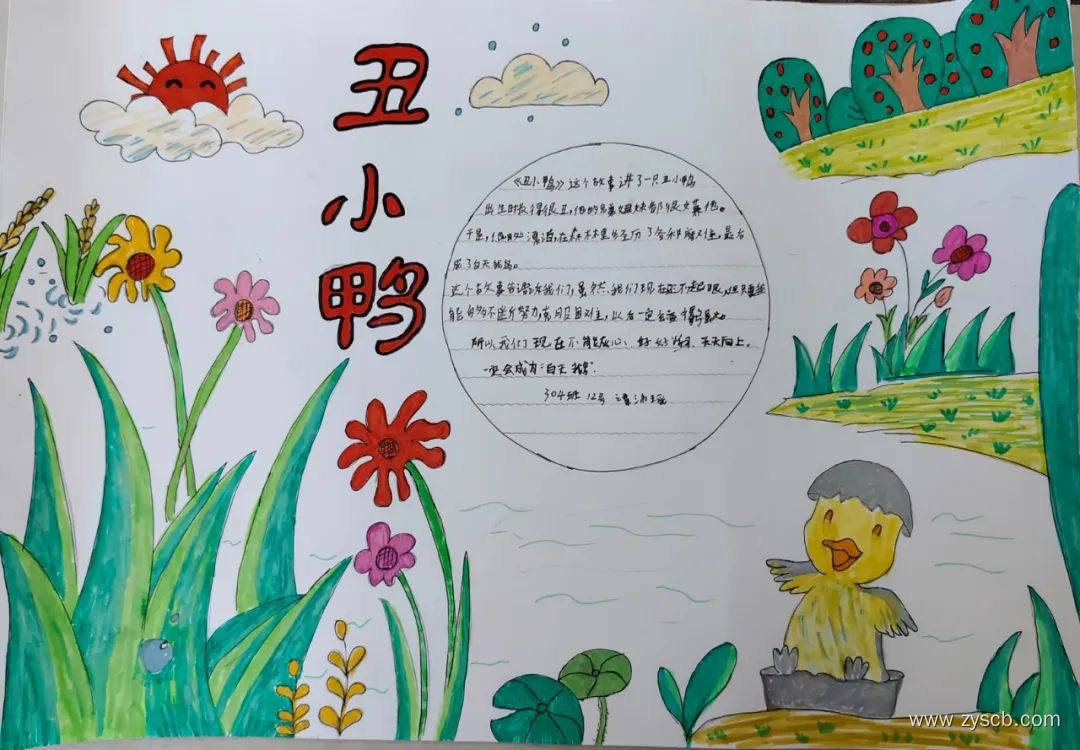 丑小鸭
《丑小鸭》这个故事讲了一只丑小鸭
出生时长得很丑,他的哥姐妹都很嫌他。
于是,他四处漂泊,在森林里经历了各种难,最后
成了白天鹅。
这个故事告诉我们,虽然我们现在还不起眼,但只要我
能够不断努力,克服困难,以后一定会
所以我们现在不能灰心,好好学习,天天向上。
一定会成为"白天鹅"。
304班 12号
www.zyscb.com